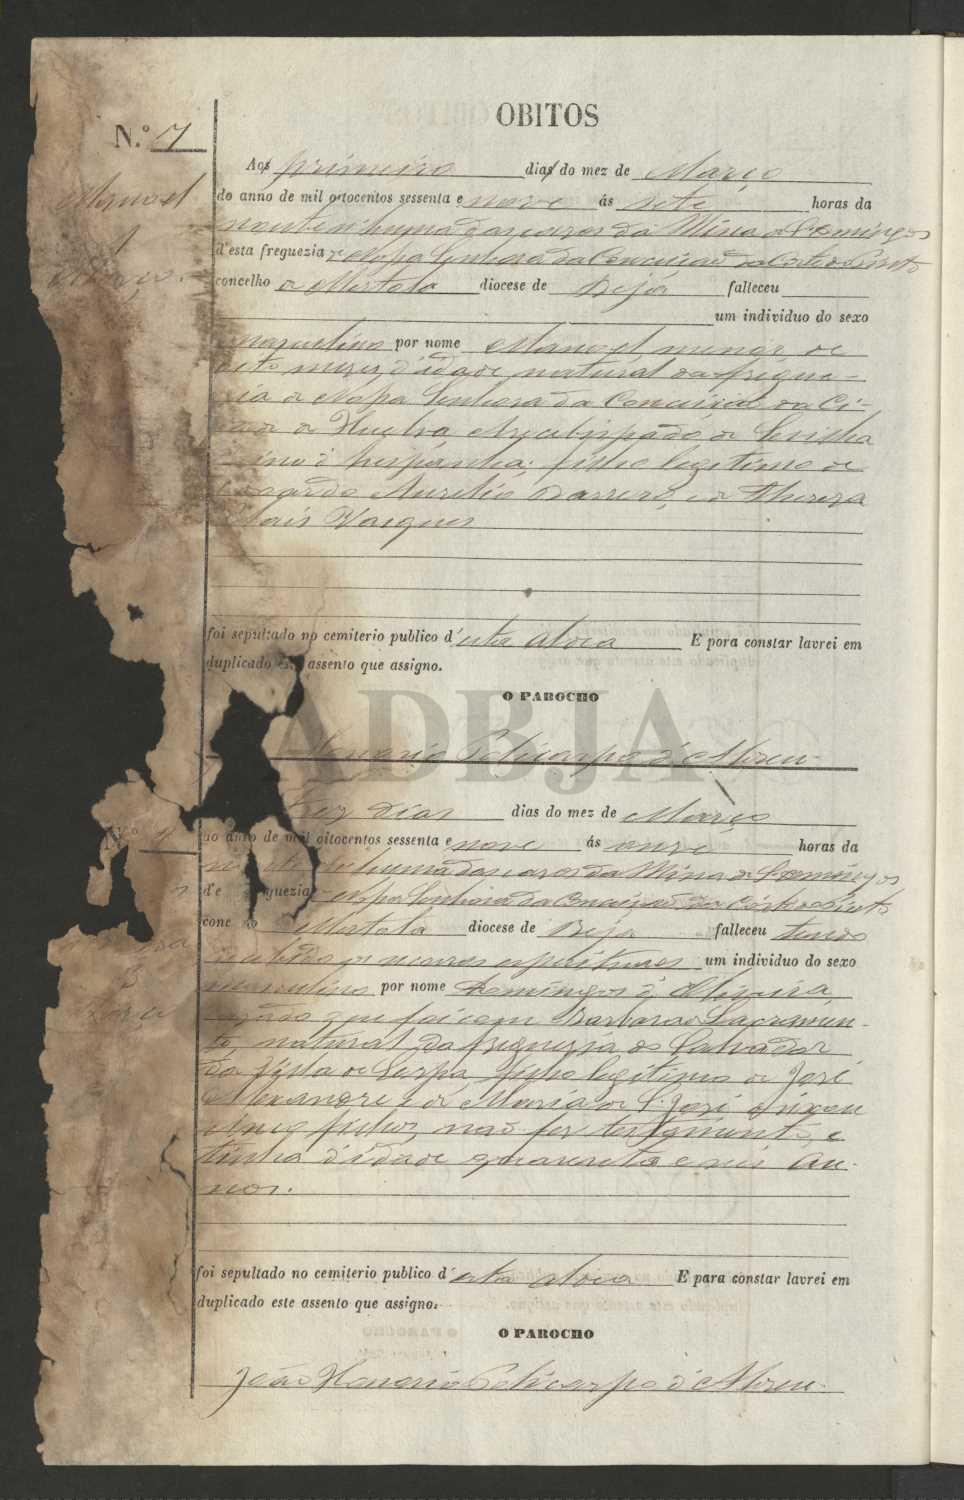 OBITOS
N.º 7
Manoel
1
Março
Aos primeiro dias do mez de Março
do anno de mil oitocentos sessenta e nove ás sete horas da
noute n'huma das cazas da Mina de S. Domingos
d'esta freguezia de Nossa Senhora da Conceição da Corte do Pinto
concelho de Mertola diocese de Beja falleceu
um individuo do sexo
masculino por nome Manoel menor de
oito mezes d'idade, natural da fregue-
zia de Nossa Senhora da Conceição da Ci-
dade de Huelva Arcebispado de Sevilha
Reino d'Hespanha; filho legitimo de
Aurelio Barrero, e de Thereza
Vasques
foi sepultado no cemiterio publico d'esta aldea E pora constar lavrei em
duplicado este assento que assigno.
O PAROCHO
Honorio Policarpo d'Abreu
ADBJA
N.º 8
Dez dias dias do mez de Março
do anno de mil oitocentos sessenta e nove ás onze horas da
huma das cazas da Mina de S. Domingos
d'e freguezia de Nossa Senhora da Conceição da Corte do Pinto
conc o Mertola diocese de Beja falleceu tendo
recebido os soccorros espirituaes um individuo do sexo
masculino por nome Domingos d'Oliveira
cazado que foi com Barbara do Sacramen-
to, natural da freguezia do Salvador
da Villa de Serpa, filho legitimo de José
Alexandre e de Maria de S. José deixou
cinco filhos, não fez testamento, e
tinha d'idade quarenta e seis an-
nos.
foi sepultado no cemiterio publico d'esta aldea E para constar lavrei em
duplicado este assento que assigno.
O PAROCHO
João Honorio Policarpo d'Abreu